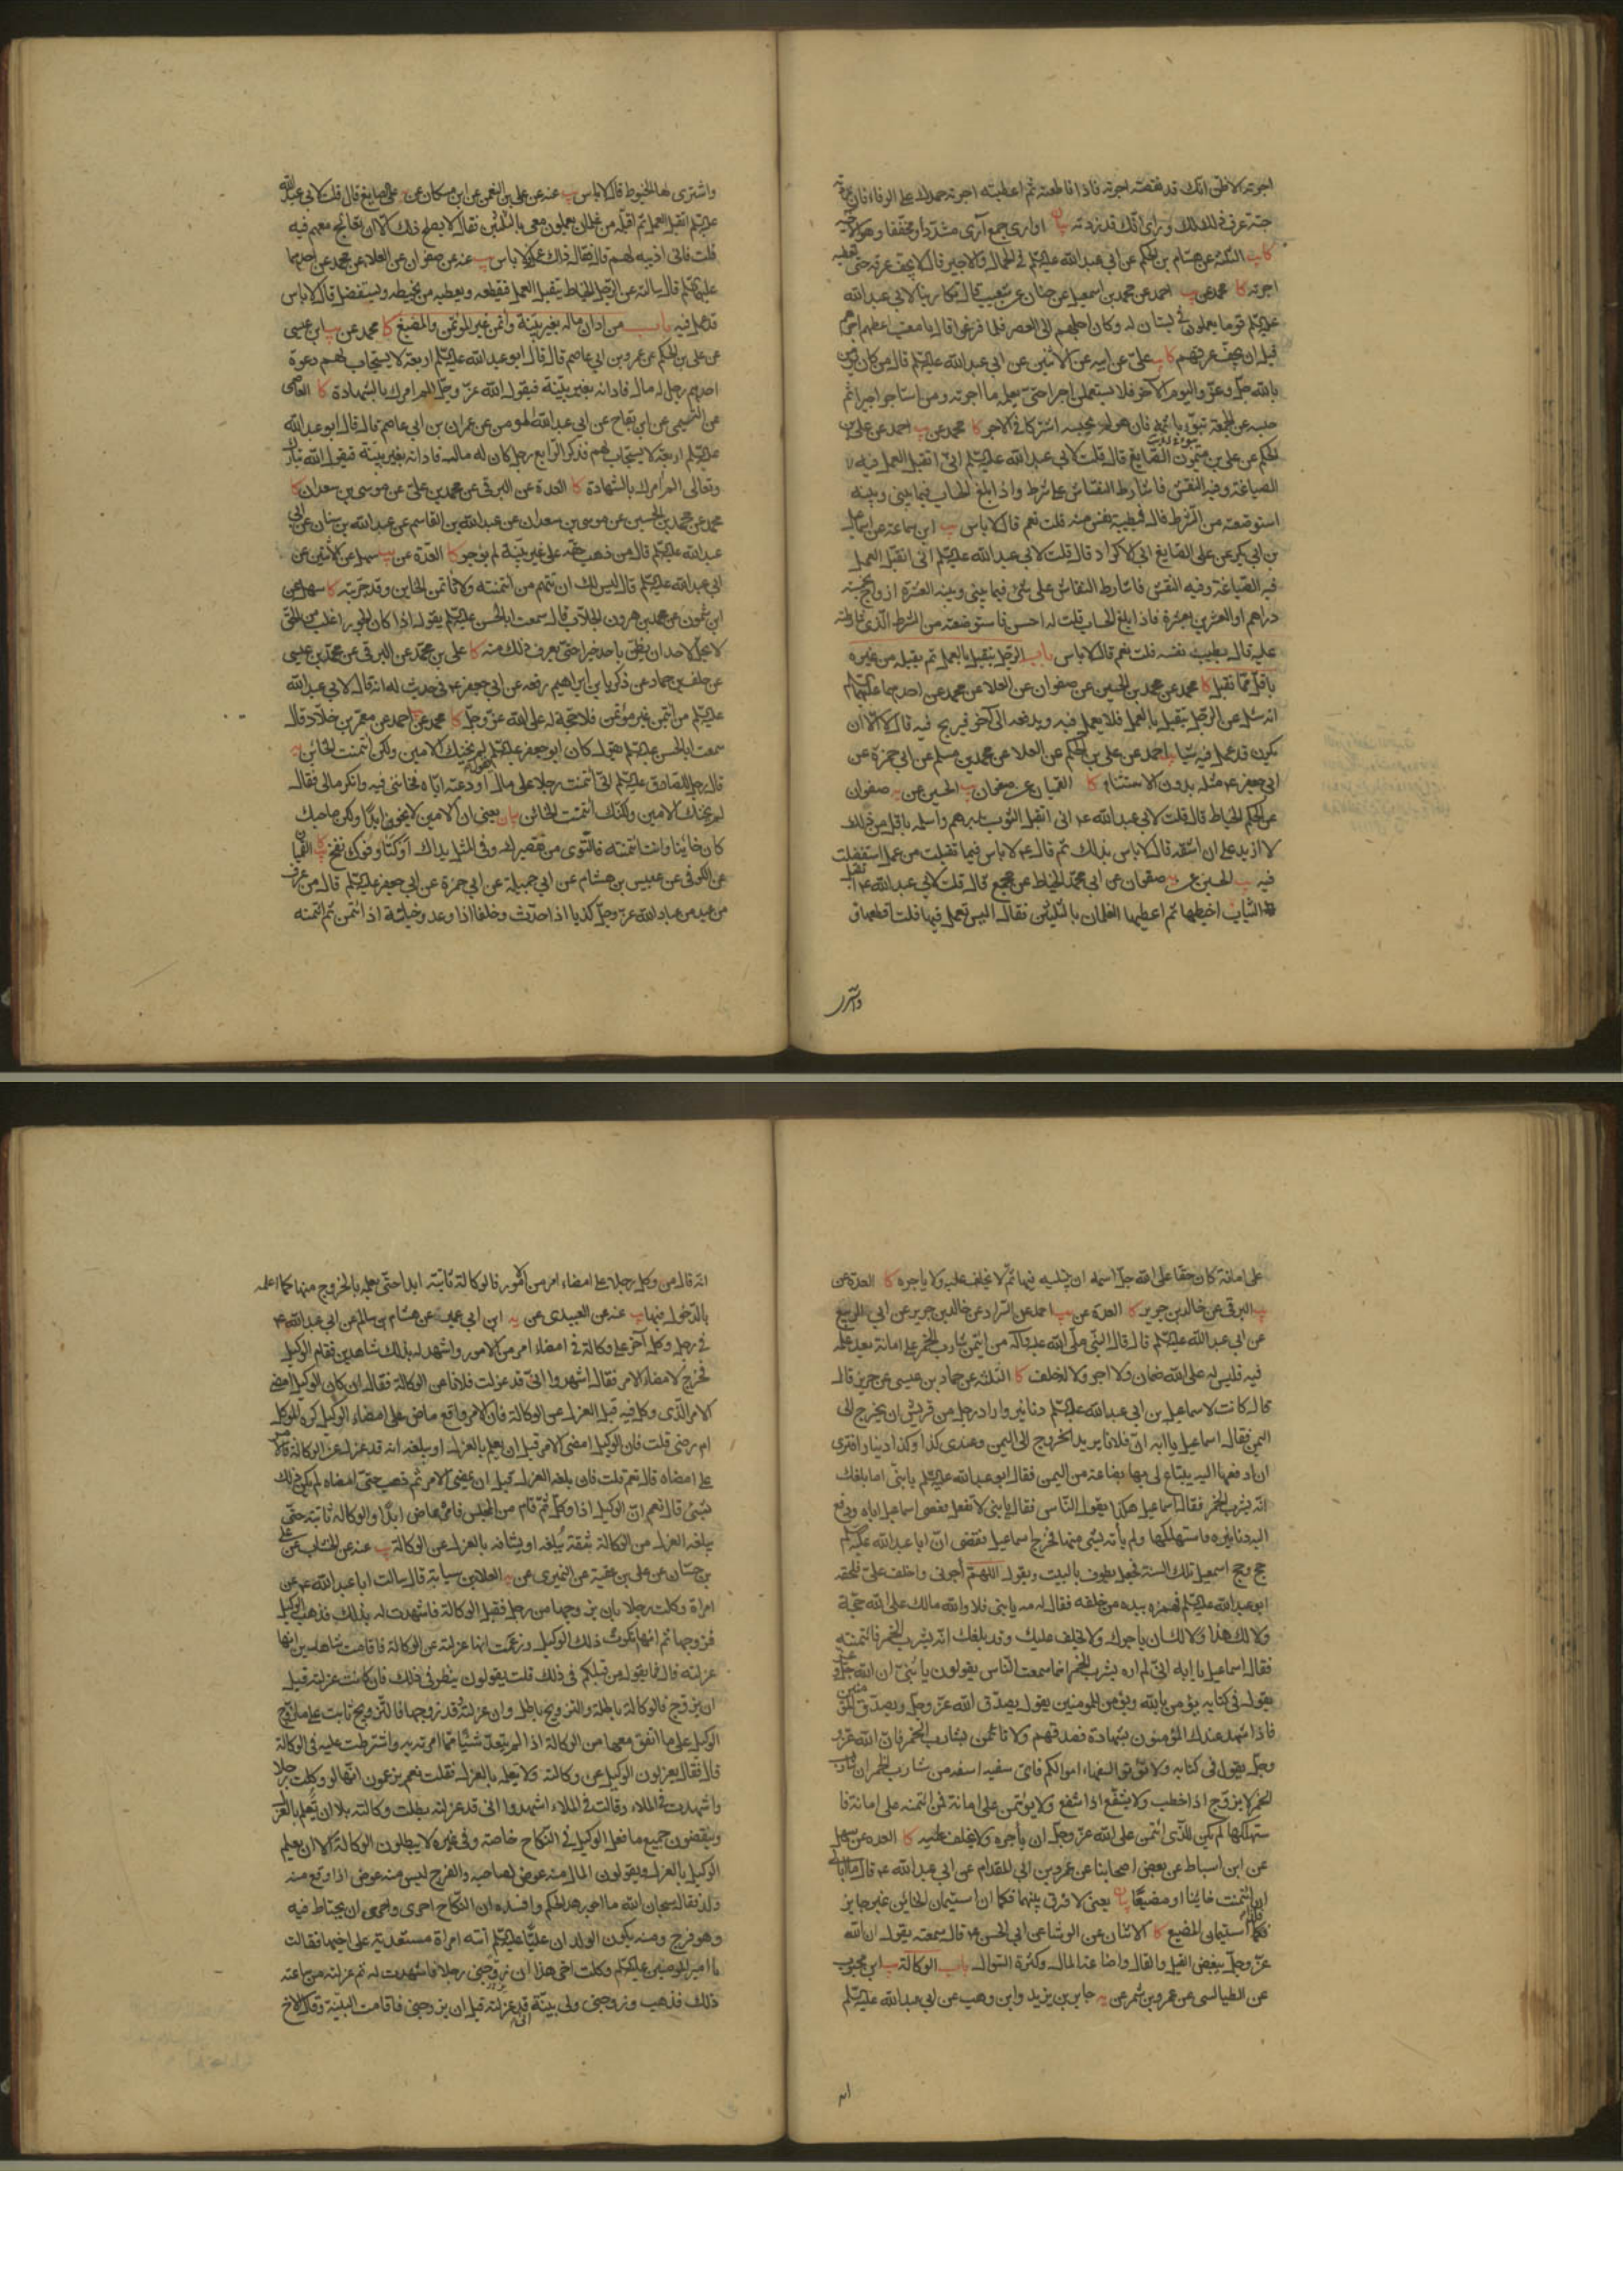 اجرته الا ظن انك قد نقصته اجرته فاذا قاطعته ثم اعطيته اجرته حمدك على الوفاء فان زدته
حبة عرف ذلك لك وراى انك قد زدته بيان
كا الثلثة عن هشام بن الحكم عن ابي عبد الله عليه السلم في الحمال والاجير قال لا يجف عرقه حتى تعطيه
اجرته كا محمد عن احمد عن محمد بن اسمعيل عن حنان عن شعيب قال تكارينا لابي عبد الله
عليه السلم قوما يعملون في بستان له وكان اجلهم الى العصر فلما فرغوا قال يا معتب اعطهم اجرهم
قبل ان يجف عرقهم كا علي عن ابيه عن الاثنين عن ابي عبد الله عليه السلم قال من كان يؤمن
بالله جل وعز واليوم الآخر فلا يستعملن اجيرا حتى يعلم ما اجرته ومن استاجر اجيرا ثم
حبسه عن الجمعة تبوء باثمه فان هو لم يحبسه اشتركا في الاجر كا محمد عن يب احمد عن علي بن
الحكم عن علي بن ميمون الصايغ قال قلت لابي عبد الله عليه السلم اني اتقبل العمل فيه
الصياغة وفيه النقش فاشارط النقاش على شرط واذا بلغ الحساب فيما بيني وبينه
استوضعته من الشرط قال فبطيبة نفس منه قلت نعم قال لا باس يب ابن سماعة عن
بن ابي بكر عن علي الصايغ ابي الاكراد قال قلت لابي عبد الله عليه السلم اني اتقبل العمل
فيه الصياغة وفيه النقش فاشارط النقاش على شئ فيما بيني وبينه العشرة ازواج بخمسة
دراهم او العشرين بعشرة فاذا بلغ الحساب قلت له احسن فاستوضعته من الشرط الذي شارطته
عليه قال بطيب نفسه قلت نعم قال لا باس باب الرجل يتقبل بالعمل ثم يقبله من غيره
باقل مما تقبل كا محمد عن محمد بن الحسين عن صفوان عن العلا عن محمد عن احدهما عليهما السلم
انه سئل عن الرجل يتقبل بالعمل فلا يعمل فيه ويدفعه الى آخر فيربح فيه قال لا الا ان
يكون قد عمل فيه شيئا يب احمد عن علي بن الحكم عن العلا عن محمد بن مسلم عن ابي حمزة عن
ابي جعفر ع مثله بدون الاستثناء كا القميان عن صفوان يب الحسين عن صفوان
عن الحكم الخياط قال قلت لابي عبد الله ع اني اتقبل الثوب بدرهم واسلمه باقل من ذلك
لا ازيد على ان اشقه قال لا باس بذلك ثم قال ع لا باس فيما تقبلت من عمل استفضلت
فيه يب الحسين عن صفوان عن ابي محمد الخياط عن مجمع قال قلت لابي عبد الله ع اتقبل
الثياب اخيطها ثم اعطيها الغلمان بالثلثين فقال اليس تعمل فيها قلت اقطعها و
واشترى
واشترى لها الخيوط قال لا باس يب عنه عن علي بن النعمن عن ابن مسكان عن علي الصايغ قال قلت لابي عبد الله
عليه السلم اتقبل العمل ثم اقبله من غلمان يعملون معي بالثلثين فقال لا يصلح ذلك الا ان تعالج معهم فيه
قلت فاني اذيبه لهم قال فقال ذاك عمل فلا باس يب عنه عن صفوان عن العلا عن محمد عن احدهما
عليهما السلم قال سالته عن الرجل الخياط يتقبل العمل فيقطعه ويعطيه من يخيطه ويستفضل قال لا باس
قد عمل فيه باب من ادان ماله بغير بينة وائتمن غير المؤتمن والمضيع كا محمد عن ابن عيسى
عن علي بن الحكم عن عمرو بن ابي عاصم قال قال ابو عبد الله عليه السلم اربعة لا يستجاب لهم دعوة
احدهم رجل له مال فادانه بغير بينة فيقول الله عز وجل الم امرك بالشهادة كا العاصمي
عن التيمي عن ابن بقاح عن ابي عبد الله المومن عن عمران بن ابي عاصم قال قال ابو عبد الله
عليه السلم اربعة لا يستجاب لهم فذكر الرابع رجل كان له مال فادانه بغير بينة فيقول الله تبارك
وتعالى الم امرك بالشهادة كا العدة عن البرقي عن محمد بن علي عن موسى بن سعدان كا
محمد عن محمد بن الحسين عن موسى بن سعدان عن عبد الله بن القاسم عن عبد الله بن سنان عن ابي
عبد الله عليه السلم قال من ذهب حقه على غير بينة لم يوجر كا العدة عن يب سهل عن الاثنين عن
ابي عبد الله عليه السلم قال ليس لك ان تتهم من ائتمنته ولا تاتمن الخاين وقد جربته كا سهل عن
ابن شمون عن محمد بن هرون الجلاب قال سمعت ابا الحسن عليه السلم يقول اذا كان الجور اغلب من الحق
لا يحل لاحد ان يظن باحد خيرا حتى يعرف ذلك منه كا علي بن محمد عن البرقي عن محمد بن عيسى
عن خلف بن حماد عن ذكريا بن ابراهيم رفعه عن ابي جعفر ع في حديث له انه قال لابي عبد الله
عليه السلم من ائتمن غير مؤتمن فلا حجة له على الله عز وجل كا محمد عن احمد عن معمر بن خلاد قال
سمعت ابا الحسن عليه السلم يقول كان ابو جعفر عليه السلم يقول لم يخنك الامين ولكن ائتمنت الخاين يه
قال رجل للصادق عليه السلم اني ائتمنت رجلا على مال اودعته اياه فخانني فيه وانكر مالي فقال
لم يخنك الامين ولكنك ائتمنت الخائن بيان يعني ان الامين لا يخون ابدا ولكن صاحبك
كان خاينا وانت ائتمنته فالتوى من تقصيرك وفي المثل يداك اوكتا وفوك نفخ كا القميان
عن الكوفي عن عبيس بن هشام عن ابي جميلة عن ابي حمزة عن ابي جعفر عليه السلم قال من عرف
من عبد من عباد الله عز وجل كذبا اذا حدث وخلفا اذا وعد وخيانة اذا ائتمن ثم ائتمنه
على امانة كان حقا على الله جل اسمه ان يبتليه فيها ثم لا يخلف عليه ولا ياجره كا العدة عن
البرقي عن خالد بن جرير كا العدة عن يب احمد عن السراد عن خالد بن جرير عن ابي الربيع
عن ابي عبد الله عليه السلم قال قال النبي صلى الله عليه وآله من ائتمن شارب الخمر على امانة بعد علمه
فيه فليس له على الله ضمان ولا اجر ولا خلف كا الثلثة عن حماد بن عيسى عن حريز قال
قال كانت لاسماعيل بن ابي عبد الله عليه السلم دنانير واراد رجل من قريش ان يخرج الى
اليمن فقال اسماعيل يا ابه ان فلانا يريد الخروج الى اليمن وعندي كذا وكذا دينار افترى
ان ادفعها اليه يبتاع لي بها بضاعة من اليمن فقال ابو عبد الله عليه السلم يا بني اما بلغك
انه يشرب الخمر فقال اسماعيل هكذا يقول الناس فقال يا بني لا تفعل فعصى اسماعيل اباه ودفع
اليه دنانيره فاستهلكها ولم ياته بشئ منها فخرج اسماعيل فقضى ان ابا عبد الله عليه السلم
حج وحج اسمعيل تلك السنة فجعل يطوف بالبيت ويقول اللهم أجرني واخلف علي فلحقه
ابو عبد الله عليه السلم فهمزه بيده من خلفه فقال له مه يا بني فلا والله مالك على الله حجة
ولا لك هذا ولا لك ان ياجرك ولا يخلف عليك وقد بلغك انه يشرب الخمر فائتمنته
فقال اسماعيل يا ابه اني لم اره يشرب الخمر انما سمعت الناس يقولون يا بني ان الله عز وجل
يقول في كتابه يؤمن بالله ويؤمن للمومنين يقول يصدق الله عز وجل ويصدق المؤمنين
فاذا شهد عندك المؤمنون بشهادة فصدقهم ولا تاتمن شارب الخمر فان الله عز
وجل يقول في كتابه ولا تؤتوا السفهاء اموالكم فاي سفيه اسفه من شارب الخمر ان شارب
الخمر لا يزوج اذا خطب ولا يشفع اذا شفع ولا يؤتمن على امانة فمن ائتمنه على امانة فا
ستهلكها لم يكن للذي ائتمن على الله عز وجل ان يأجره ولا يخلف عليه كا العدة عن سهل
عن ابن اسباط عن بعض اصحابنا عن عمرو بن ابي المقدام عن ابي عبد الله ع قال ما ابالي
ائتمنت خاينا او مضيعا بيان يعني لا فرق بينهما فكما ان استيمان الخاين غير جايز
فكذا استيمان المضيع كا الاثنان عن الوشا عن ابي الحسن ع قال سمعته يقول ان الله
عز وجل يبغض القيل والقال واضاعة المال وكثرة السؤال باب الوكالة يب ابن محبوب
عن الطيالسي عن عمرو بن شمر عن يه جابر بن يزيد وابن وهب عن ابي عبد الله عليه السلم
انه
انه قال من وكل رجلا على امضاء امر من الامور فالوكالة ثابتة ابدا حتى يعلمه بالخروج منها كما اعلمه
بالدخول فيها يب عنه عن العبيدي عن يه ابن ابي عمير عن هشام بن سالم عن ابي عبد الله ع
في رجل وكل آخر على وكالة في امضاء امر من الامور واشهد له بذلك شاهدين فقام الوكيل
فخرج لامضاء الامر فقال اشهدوا اني قد عزلت فلانا من الوكالة فقال ان كان الوكيل امضى
الامر الذي وكل فيه قبل العزل عن الوكالة فان الامر واقع ماض على امضاه الوكيل كره الموكل
ام رضى قلت فان الوكيل امضى الامر قبل ان يعلم بالعزل او يبلغه انه قد عزل عن الوكالة فالامر
على امضاه قال نعم قلت فان بلغه العزل قبل ان يمضي الامر ثم ذهب حتى امضاه لم يكن ذلك
بشئ قال نعم ان الوكيل اذا وكل ثم قام من المجلس فامره ماض ابدا والوكالة ثابتة حتى
يبلغه العزل من الوكالة بثقة يبلغه او يشافه بالعزل عن الوكالة يب عنه عن الخشاب عن علي
بن حسان عن علي بن عقبة عن النميري عن يه العلا بن سيابة قال سالت ابا عبد الله ع عن
امراة وكلت رجلا بان يزوجها من رجل فقبل الوكالة فاشهدت له بذلك فذهب الوكيل
فزوجها ثم انها انكرت ذلك الوكيل وزعمت انها عزلته عن الوكالة فاقامت شاهدين انها
عزلته قال فما يقول من قبلكم في ذلك قلت يقولون ينظر في ذلك فان كانت عزلته قبل
ان يزوج فالوكالة باطلة والتزويج باطل وان عزلته وقد زوجها فالتزويج ثابت على ما زوج
الوكيل على ما اتفق معها من الوكالة اذا لم يتعد شيئا مما امرته به واشترطت عليه في الوكالة
قال فقال يعزلون الوكيل عن وكالته ولا يعلمه بالعزل فقلت نعم يزعمون انها لو وكلت رجلا
واشهدت في الملاء وقالت في الملاء اشهدوا اني قد عزلته بطلت وكالته بلا ان يعلم بالعزل
وينقضون جميع ما فعل الوكيل في النكاح خاصة وفي غيره لا يبطلون الوكالة الا ان يعلم
الوكيل بالعزل ويقولون المال منه عوض لصاحبه والفرج ليس منه عوض اذا وقع منه
ولد فقال سبحان الله ما اجور هذا الحكم وافسده ان النكاح احرى واحرى ان يحتاط فيه
وهو فرج ومنه يكون الولد ان عليا عليه السلم اتته امراة مستعدية على اخيها فقالت
يا امير المومنين عليه السلم وكلت اخي هذا ان يزوجني رجلا فاشهدت له ثم عزلته من ساعته
ذلك فذهب وزوجني ولي بينة اني قد عزلته قبل ان يزوجني فاقامت البينة وقال الاخ